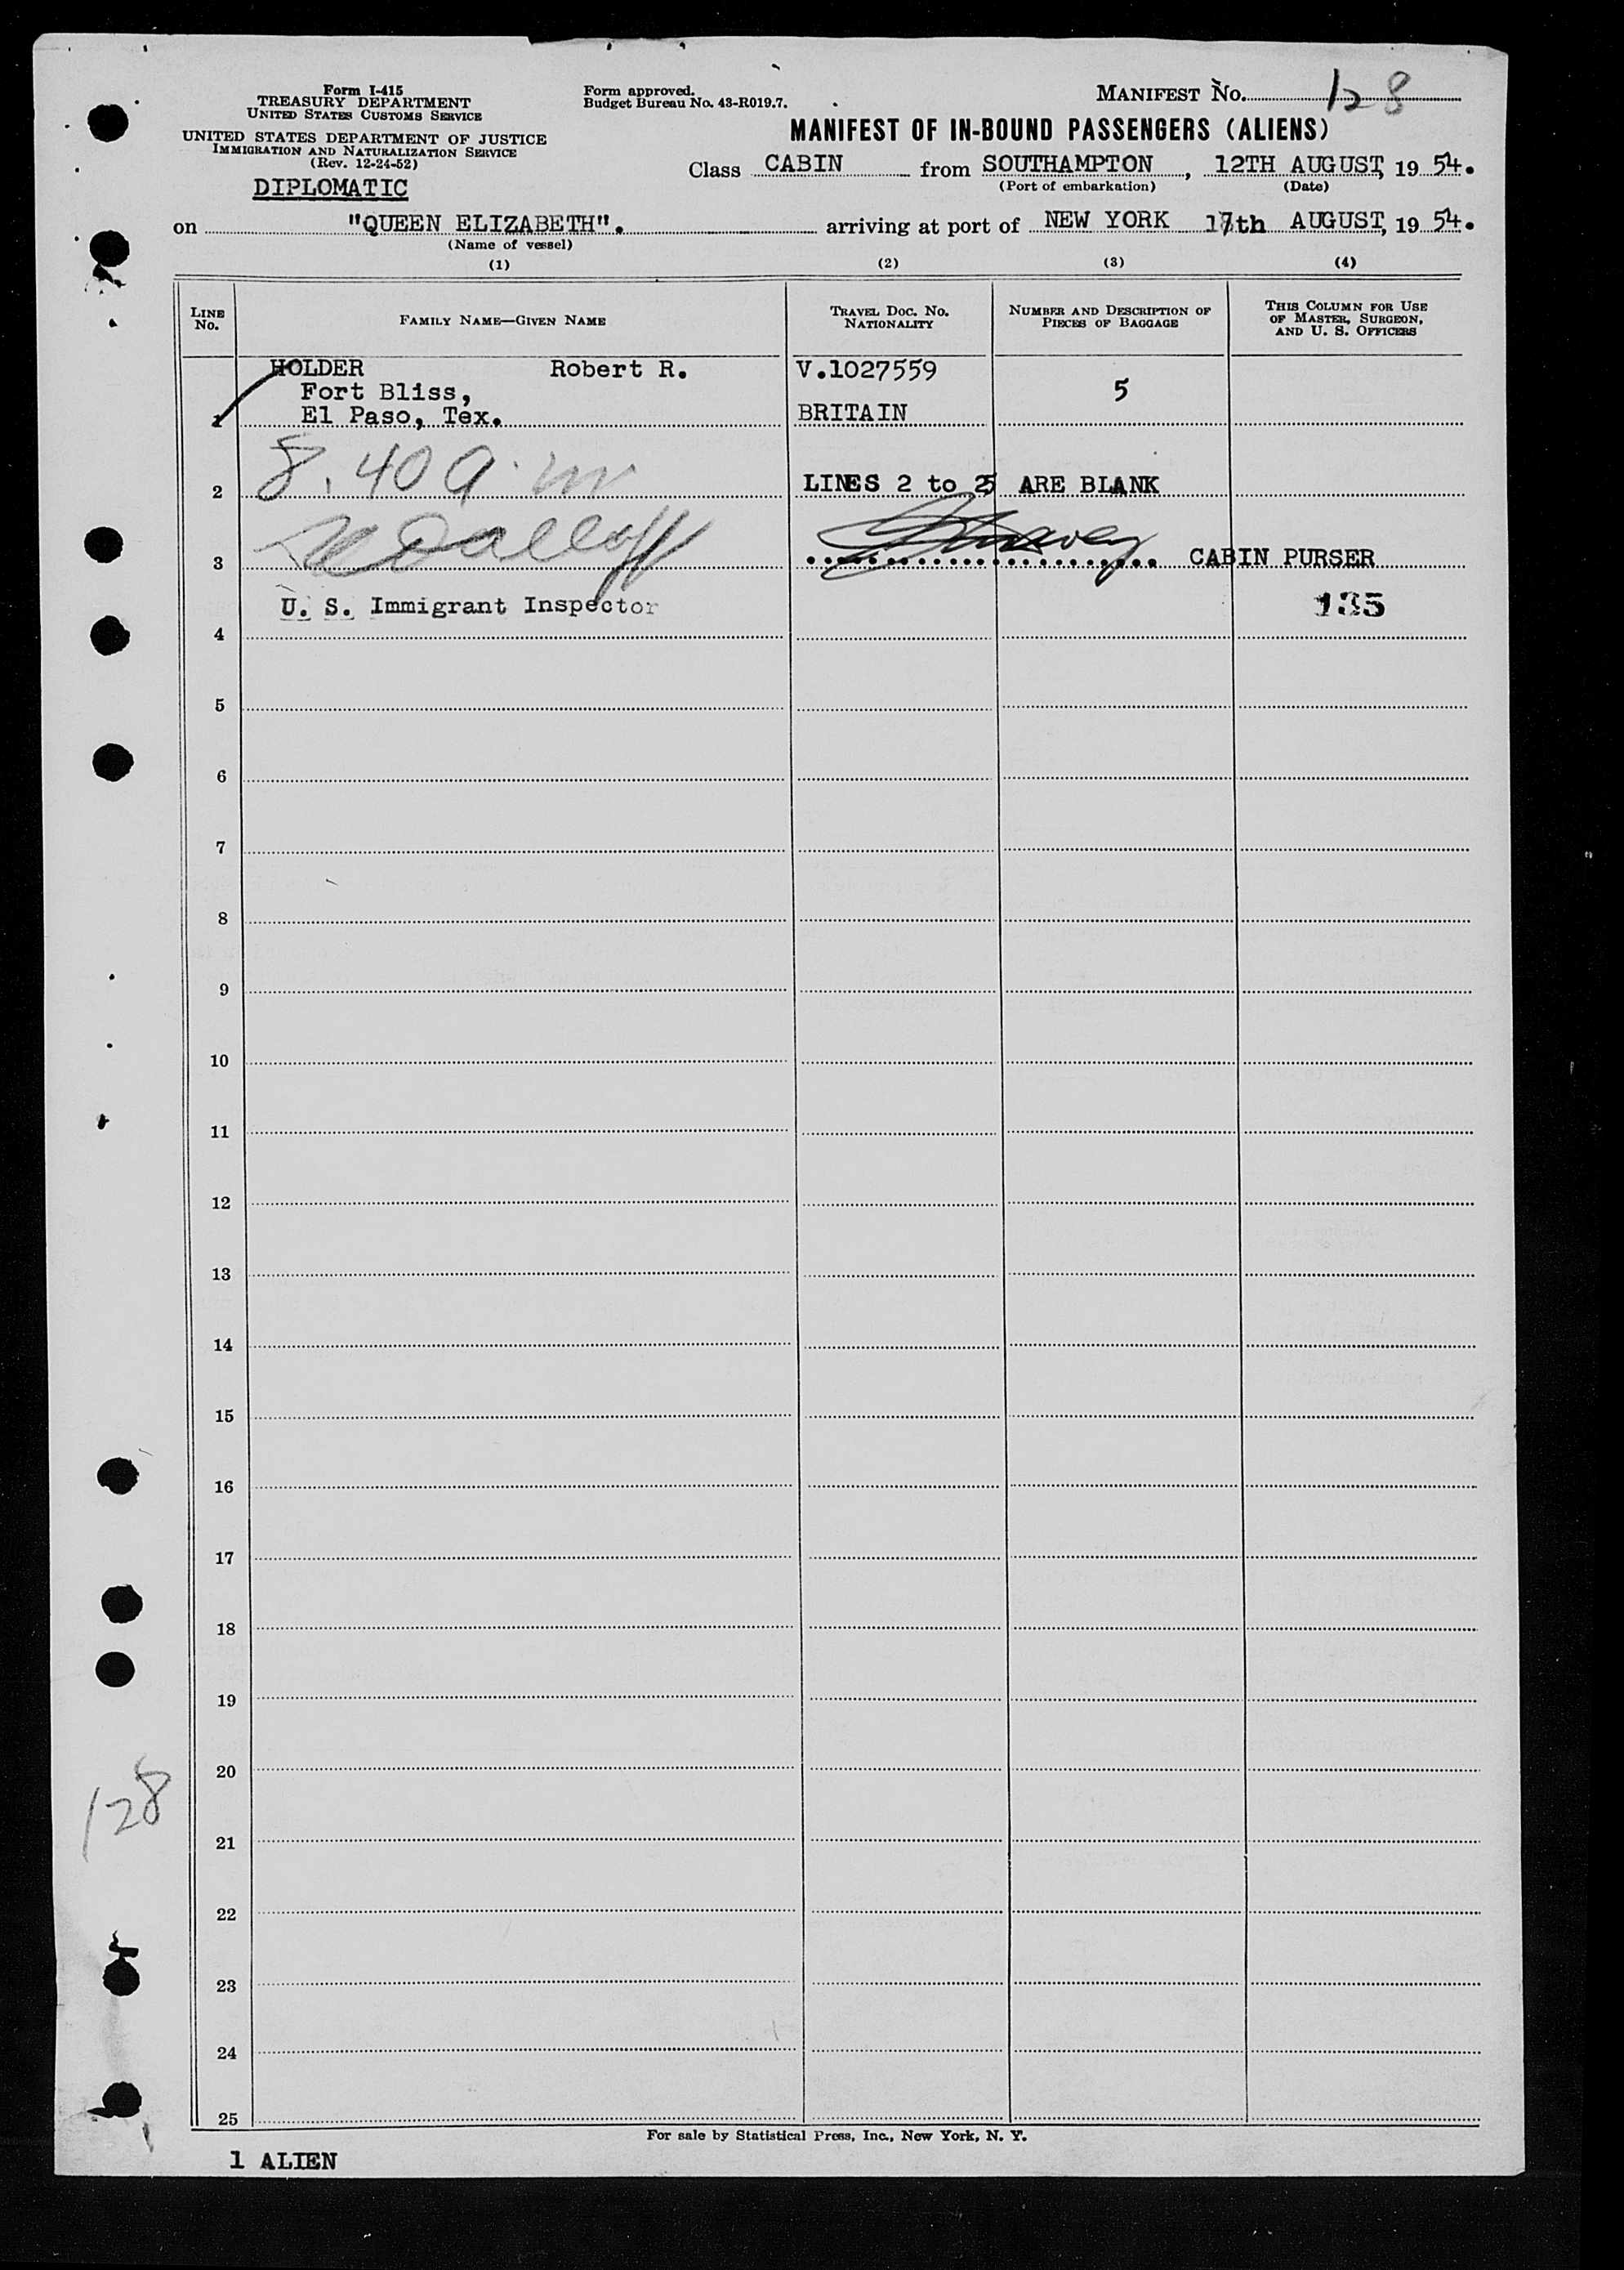 Form I-415
TREASURY DEPARTMENT
UNITED STATES CUSTOMS SERVICE
UNITED STATES DEPARTMENT OF JUSTICE
IMMIGRATION AND NATURALIZATION SERVICE
(Rev. 12-24-52)
DIPLOMATIC
Form approved.
Budget Bureau No. 43-R019.7.
MANIFEST No. 128
MANIFEST OF IN-BOUND PASSENGERS (ALIENS)
Class CABIN from SOUTHAMPTON, 12TH AUGUST, 19 54.
(Port of embarkation) (Date)
on "QUEEN ELIZABETH". arriving at port of NEW YORK 17th AUGUST, 19 54.
(Name of vessel)
(1) (2) (3) (4)
LINE No. FAMILY NAME—GIVEN NAME TRAVEL DOC. NO. NATIONALITY NUMBER AND DESCRIPTION OF PIECES OF BAGGAGE THIS COLUMN FOR USE OF MASTER, SURGEON, AND U. S. OFFICERS
HOLDER Robert R. V.1027559
Fort Bliss, 5
1 El Paso, Tex. BRITAIN
8.40 a.m
2 LINES 2 to 25 ARE BLANK
3 CABIN PURSER
U. S. Immigrant Inspector 135
4
5
6
7
8
9
10
11
12
13
14
15
16
17
18
19
20
128
21
22
23
24
25
For sale by Statistical Press, Inc., New York, N. Y.
1 ALIEN